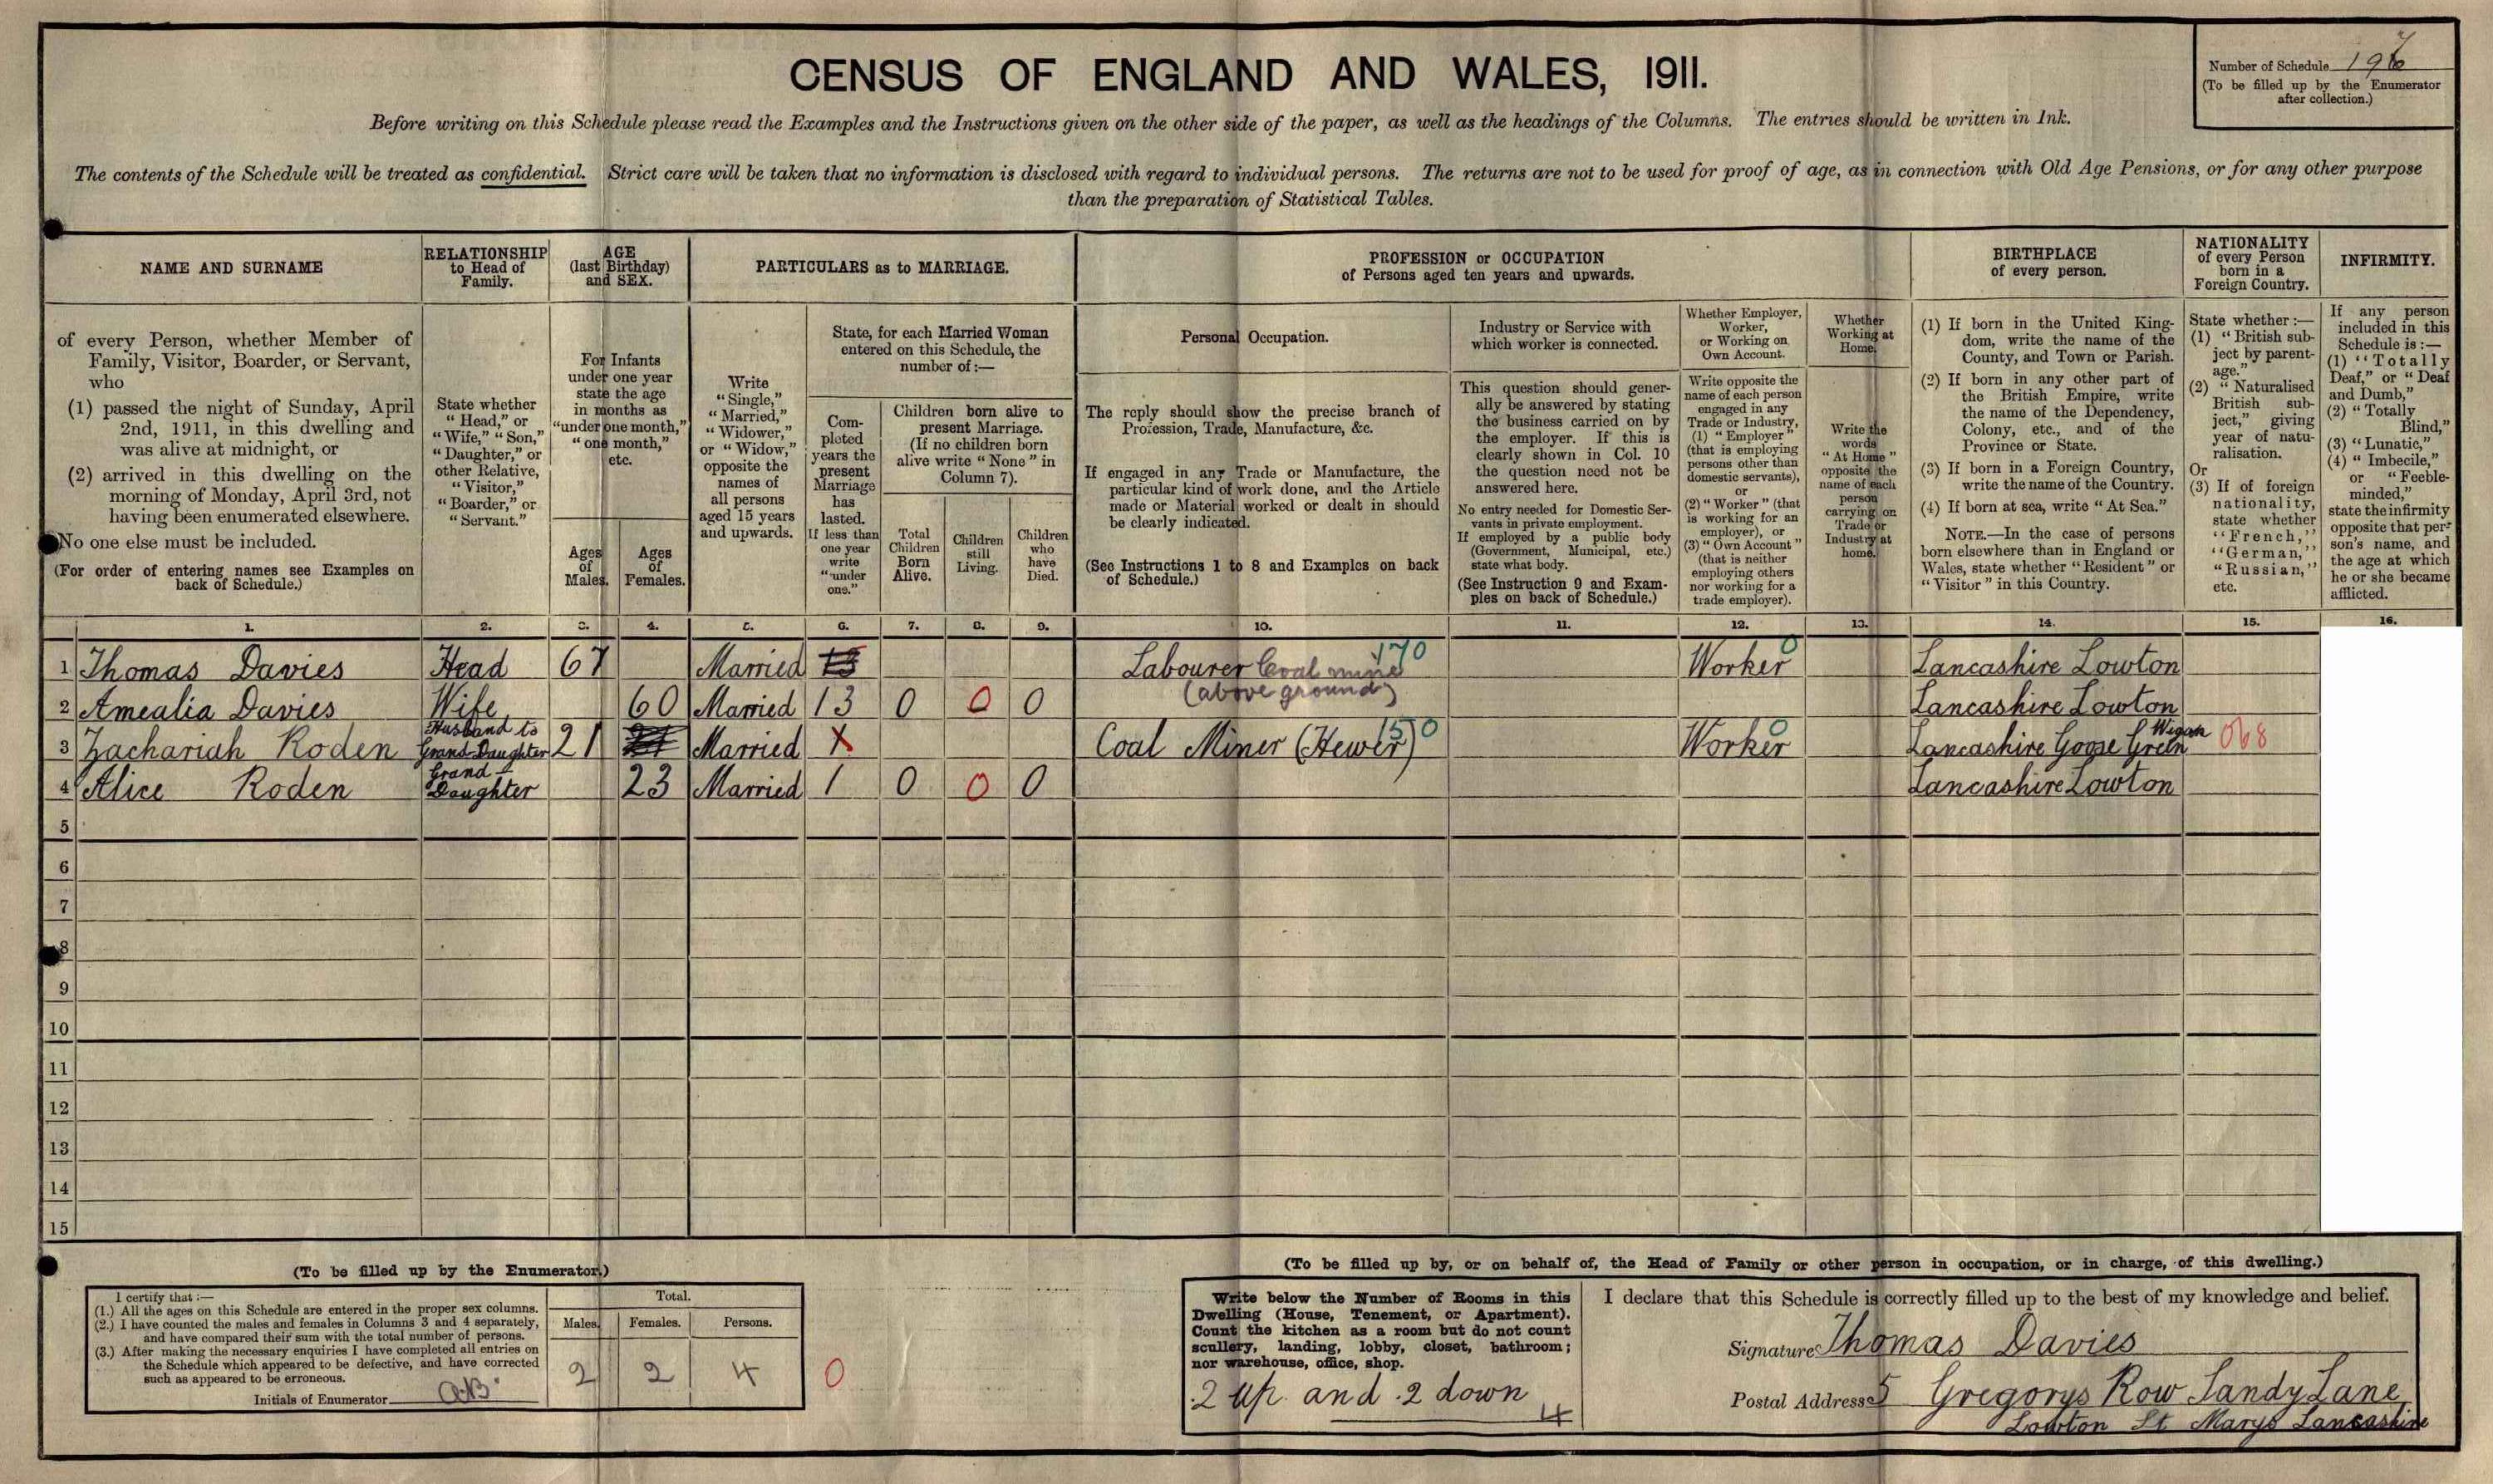 CENSUS OF ENGLAND AND WALES, 1911.
Number of Schedule 197
(To be filled up by the Enumerator
after collection.)
Before writing on this Schedule please read the Examples and the Instructions given on the other side of the paper, as well as the headings of the Columns. The entries should be written in Ink.
The contents of the Schedule will be treated as confidential. Strict care will be taken that no information is disclosed with regard to individual persons. The returns are not to be used for proof of age, as in connection with Old Age Pensions, or for any other purpose
than the preparation of Statistical Tables.
NAME AND SURNAME
of every Person, whether Member of
Family, Visitor, Boarder, or Servant,
who
(1) passed the night of Sunday, April
2nd, 1911, in this dwelling and
was alive at midnight, or
(2) arrived in this dwelling on the
morning of Monday, April 3rd, not
having been enumerated elsewhere.
No one else must be included.
(For order of entering names see Examples on
back of Schedule.)
RELATIONSHIP
to Head of
Family.
State whether
"Head," or
"Wife," "Son,"
"Daughter," or
other Relative,
"Visitor,"
"Boarder," or
"Servant."
AGE
(last Birthday)
and SEX.
For Infants
under one year
state the age
in months as
"under one month,"
"one month,"
etc.
Ages
of
Males.
Ages
of
Females.
PARTICULARS as to MARRIAGE.
Write
"Single,"
"Married,"
"Widower,"
or "Widow,"
opposite the
names of
all persons
aged 15 years
and upwards.
State, for each Married Woman
entered on this Schedule, the
number of:—
Com-
pleted
years the
present
Marriage
has
lasted.
If less than
one year
write
"under
one."
Children born alive to
present Marriage.
(If no children born
alive write "None" in
Column 7).
Total
Children
Born
Alive.
Children
still
Living.
Children
who
have
Died.
PROFESSION or OCCUPATION
of Persons aged ten years and upwards.
Personal Occupation.
The reply should show the precise branch of
Profession, Trade, Manufacture, &c.
If engaged in any Trade or Manufacture, the
particular kind of work done, and the Article
made or Material worked or dealt in should
be clearly indicated.
(See Instructions 1 to 8 and Examples on back
of Schedule.)
Industry or Service with
which worker is connected.
This question should gener-
ally be answered by stating
the business carried on by
the employer. If this is
clearly shown in Col. 10
the question need not be
answered here.
No entry needed for Domestic Ser-
vants in private employment.
If employed by a public body
(Government, Municipal, etc.)
state what body.
(See Instruction 9 and Exam-
ples on back of Schedule.)
Whether Employer,
Worker,
or Working on
Own Account.
Write opposite the
name of each person
engaged in any
Trade or Industry,
(1) "Employer"
(that is employing
persons other than
domestic servants),
or
(2) "Worker" (that
is working for an
employer), or
(3) "Own Account"
(that is neither
employing others
nor working for a
trade employer).
Whether
Working at
Home.
Write the
words
"At Home"
opposite the
name of each
person
carrying on
Trade or
Industry at
home.
BIRTHPLACE
of every person.
(1) If born in the United King-
dom, write the name of the
County, and Town or Parish.
(2) If born in any other part of
the British Empire, write
the name of the Dependency,
Colony, etc., and of the
Province or State.
(3) If born in a Foreign Country,
write the name of the Country.
(4) If born at sea, write "At Sea."
NOTE.—In the case of persons
born elsewhere than in England or
Wales, state whether "Resident" or
"Visitor" in this Country.
NATIONALITY
of every Person
born in a
Foreign Country.
State whether:—
(1) "British sub-
ject by parent-
age."
(2) "Naturalised
British sub-
ject," giving
year of natu-
ralisation.
Or
(3) If of foreign
nationality,
state whether
"French,"
"German,"
"Russian,"
etc.
INFIRMITY.
If any person
included in this
Schedule is:—
(1) "Totally
Deaf," or "Deaf
and Dumb,"
(2) "Totally
Blind,"
(3) "Lunatic,"
(4) "Imbecile,"
or "Feeble-
minded,"
state the infirmity
opposite that per-
son's name, and
the age at which
he or she became
afflicted.
1. 2. 3. 4. 5. 6. 7. 8. 9. 10. 11. 12. 13. 14. 15. 16.
1 Thomas Davies Head 67 Married 13 Labourer Coal mine 170 Worker 0 Lancashire Lowton
(above ground)
2 Amealia Davies Wife 60 Married 13 0 0 0 Lancashire Lowton
3 Zachariah Roden Husband to Grand-Daughter 21 Married X Coal Miner (Hewer) 150 Worker 0 Lancashire Goose Green Wigan 068
4 Alice Roden Grand-Daughter 23 Married 1 0 0 0 Lancashire Lowton
5
6
7
8
9
10
11
12
13
14
15
(To be filled up by the Enumerator.)
I certify that:—
(1.) All the ages on this Schedule are entered in the proper sex columns.
(2.) I have counted the males and females in Columns 3 and 4 separately,
and have compared their sum with the total number of persons.
(3.) After making the necessary enquiries I have completed all entries on
the Schedule which appeared to be defective, and have corrected
such as appeared to be erroneous.
Initials of Enumerator A.B.
Total.
Males. Females. Persons.
2 2 4
0
(To be filled up by, or on behalf of, the Head of Family or other person in occupation, or in charge, of this dwelling.)
Write below the Number of Rooms in this
Dwelling (House, Tenement, or Apartment).
Count the kitchen as a room but do not count
scullery, landing, lobby, closet, bathroom;
nor warehouse, office, shop.
2 up and 2 down
4
I declare that this Schedule is correctly filled up to the best of my knowledge and belief.
Signature Thomas Davies
Postal Address 5 Gregorys Row Sandy Lane
Lowton St Marys Lancashire